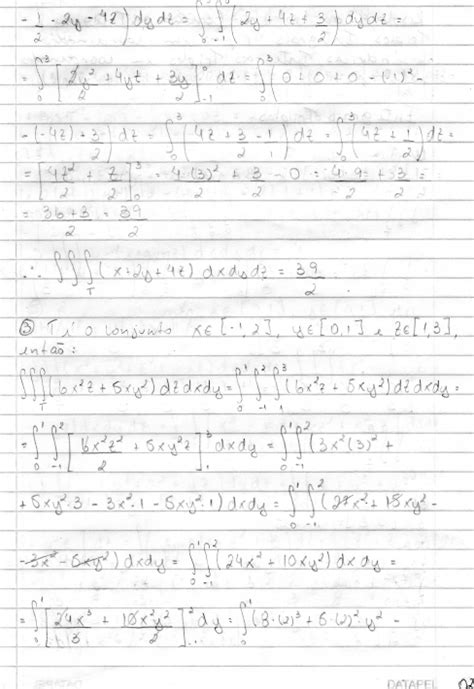 - 1/2 - 2y - 4z) dydz = ∫∫₋₁ (2y + 4z + 3/2) dydz =
= ∫₀³ [2y²/2 + 4yz + 3y/2]₋₁⁰ dz = ∫₀³ (0 + 0 + 0 - (1)² -
- (-4z) + 3/2) dz = ∫₀³ (4z + 3/2 - 1/1) dz = ∫₀³ (4z + 1/2) dz =
= [4z²/2 + z/2]₀³ = 4·(3)²/2 + 3/2 - 0 = 4·9/2 + 3/2 =
= 36+3/2 = 39/2
∴ ∫∫∫_T (x + 2y + 4z) dxdydz = 39/2.
③ T é o conjunto x∈[-1,2], y∈[0,1] e z∈[1,3],
então:
∫∫∫_T (6x²z + 5xy²) dzdxdy = ∫₀¹ ∫₋₁² ∫₁³ (6x²z + 5xy²) dzdxdy =
= ∫₀¹ ∫₋₁² [6x²z²/2 + 5xy²z]₁³ dxdy = ∫₀¹ ∫₋₁² (3x²(3)² +
+ 5xy²·3 - 3x²·1 - 5xy²·1) dxdy = ∫₀¹ ∫₋₁² (27x² + 15xy² -
- 3x² - 5xy²) dxdy = ∫₀¹ ∫₋₁² (24x² + 10xy²) dxdy =
= ∫₀¹ [24x³/3 + 10x²y²/2]² dy = ∫₀¹ (8·(2)³ + 5·(2)²·y² -
DATAPEL